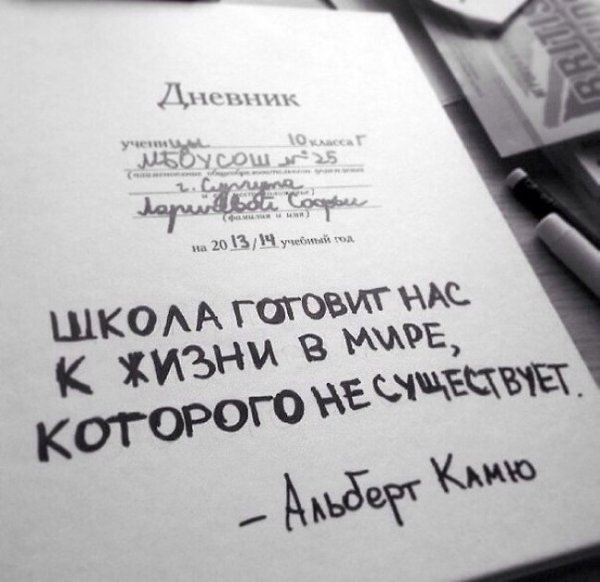 Дневник
ученицы 10 класса Г
МБОУСОШ №25
(наименование общеобразовательного учреждения
г. Сургута
Софьи
(фамилия и имя)
на 2013/14 учебный год
ШКОЛА ГОТОВИТ НАС
К ЖИЗНИ В МИРЕ,
КОТОРОГО НЕ СУЩЕСТВУЕТ.
- Альберт Камю